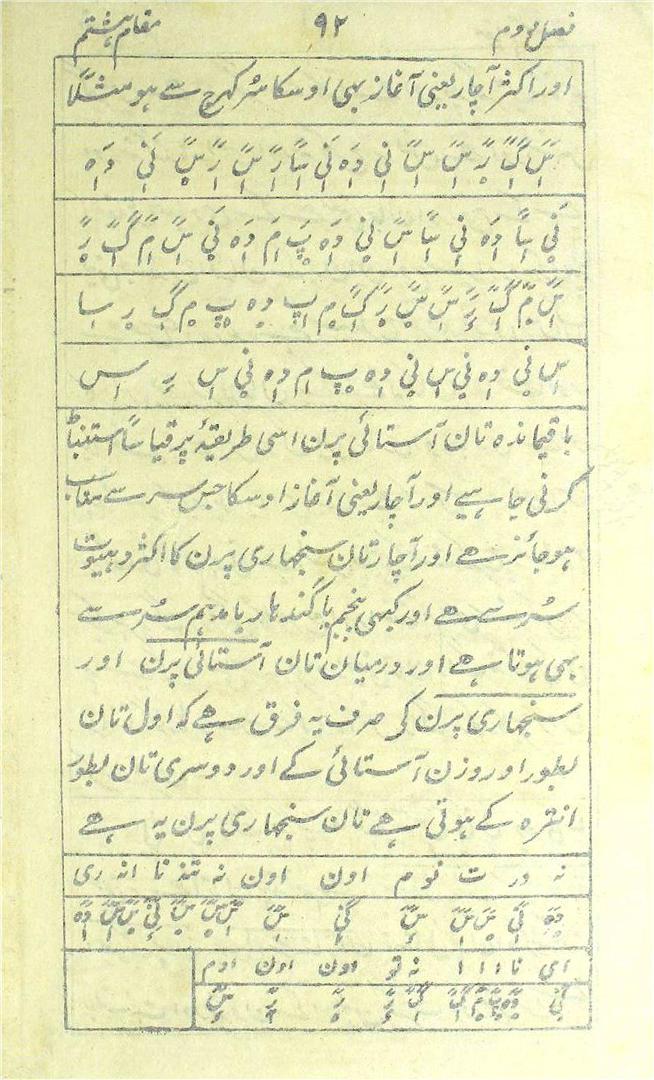 فصل دوم ۹۲ مقام ہشتم
اور اکثر آچار یعنی آغاز بہی اوسکا سُر کہرج سے ہو مثلًا
سَ گ رِ سَ سَ نِی دَہ نِی سَا رَ سَ رَ سَ نِی دَہ
نِی سَا دَہ نِی سَا سَ نِی دَہ پَ مَ دَہ نِی سَ مَ گ رِ
سَ مَ گ رِ سَ سَ رِ گ مَ پ دہ پ م گ ر سا
س نی دہ نی س نی دہ پ م دہ نی س رِ س
باقیماندہ تان آستائی پرن اسی طریقۂ پر قیاسًا استنباط
کرنی چاہیے اور آچار یعنی آغاز اوسکا جس سر سے مناسب
ہو جائز ہے اور آچار تان سنجہاری پرن کا اکثر دہیوت
سُر سے ہے اور کبہی پنچم یا گندہار یا مدہم سُر سے
بہی ہوتا ہے اور درمیان تان آستائی پرن اور
سنجہاری پرن کی صرف یہ فرق ہے کہ اول تان
بطور اور وزن آستائی کے اور دوسری تان بطور
انترہ کے ہوتی ہے تان سنجہاری پرن یہ ہے
نہ در ت نوم اون اون نہ تنہ نا انہ ری
دَہ نِی سَ سَ سَ نِی سَ سَ سَ سَ نِی سَ سَ دَہ
ای نا ا ا ا نہ تو اون اون اوم